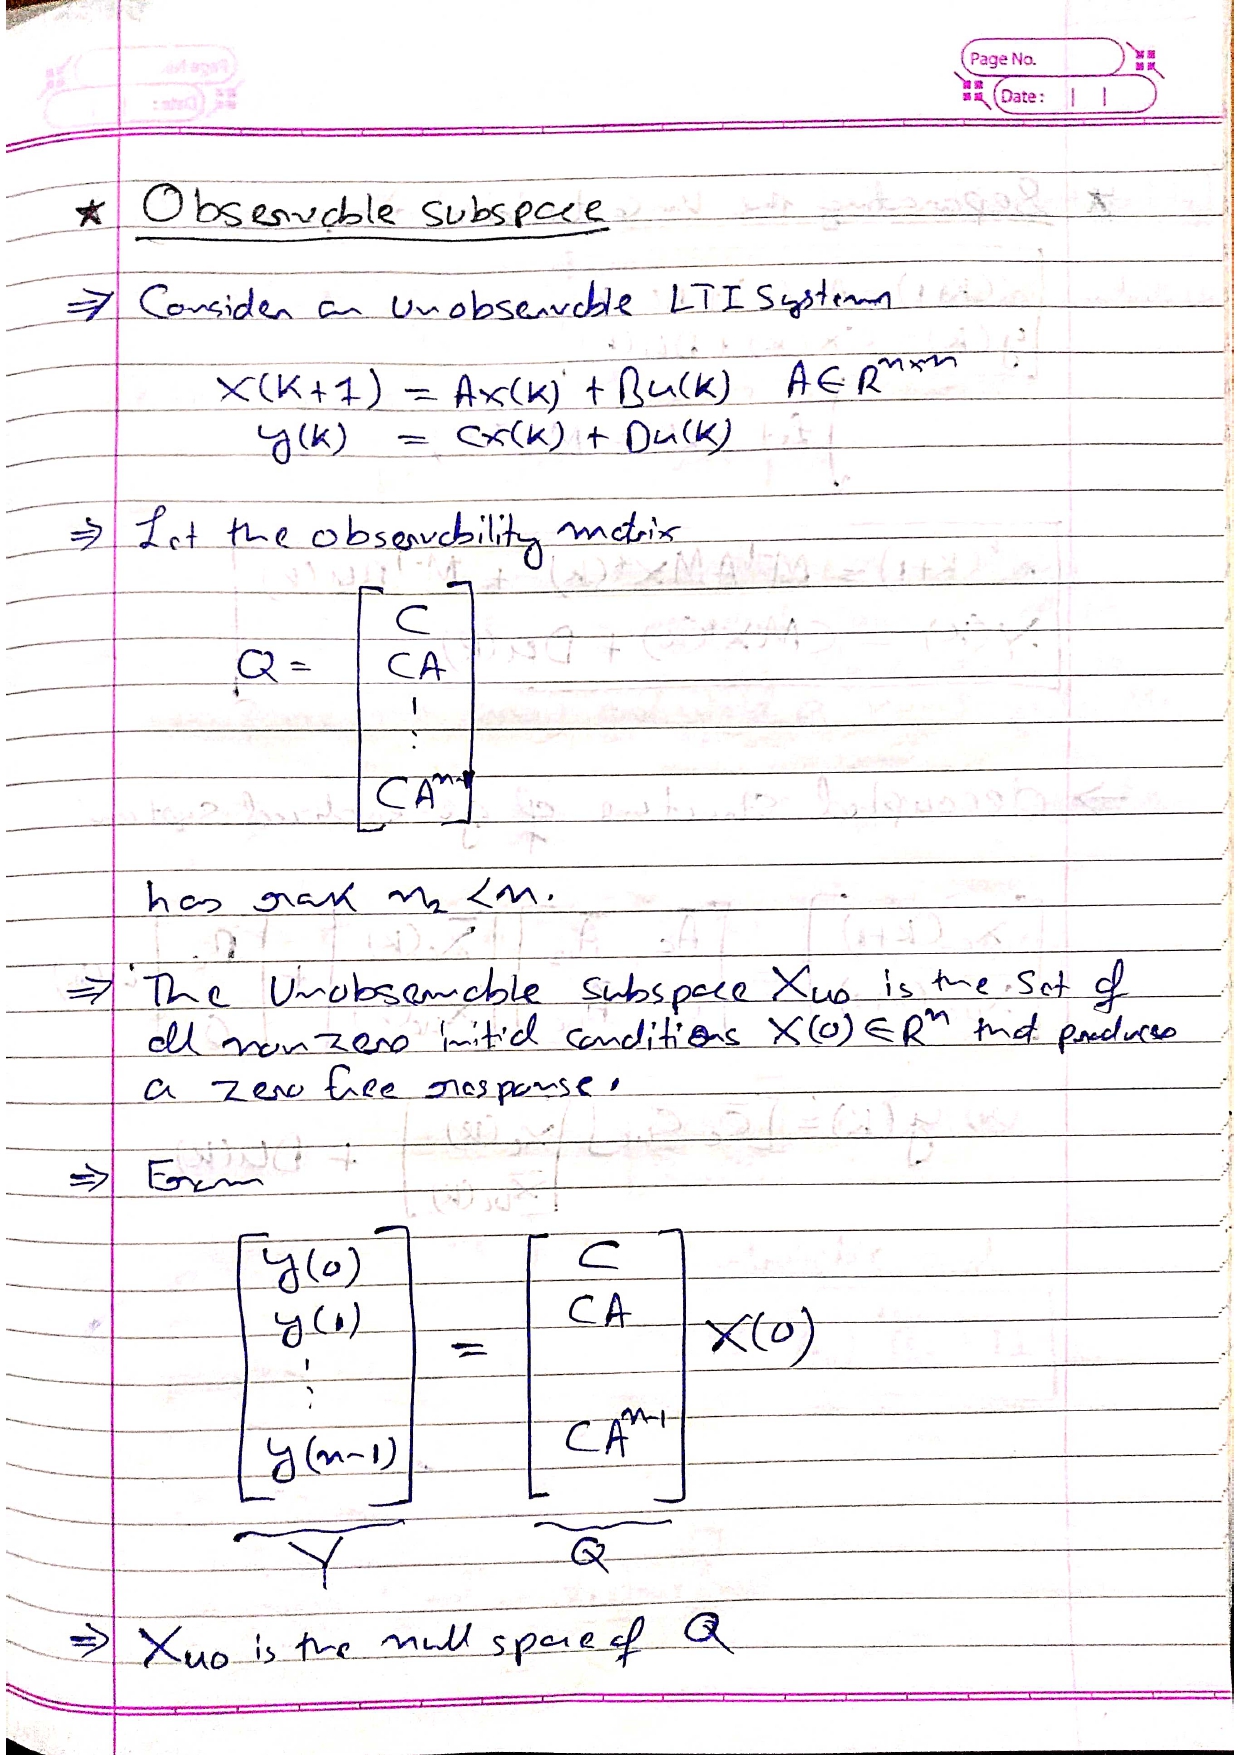 Page No.
Date:
★ Observable subspace
⇒ Consider an unobservable LTI System
x(k+1) = Ax(k) + Bu(k) A∈R^{n×n}
y(k) = Cx(k) + Du(k)
⇒ Let the observability matrix
Q = [C
CA
⋮
CA^{n-1}]
has rank n₂ < n.
⇒ The Unobservable subspace Xuo is the set of
all non zero initial conditions X(0) ∈ R^n that produces
a zero free response.
⇒ From
[y(0)
y(1)
⋮
y(n-1)] = [C
CA
CA^{n-1}] X(0)
Y Q
⇒ Xuo is the null space of Q